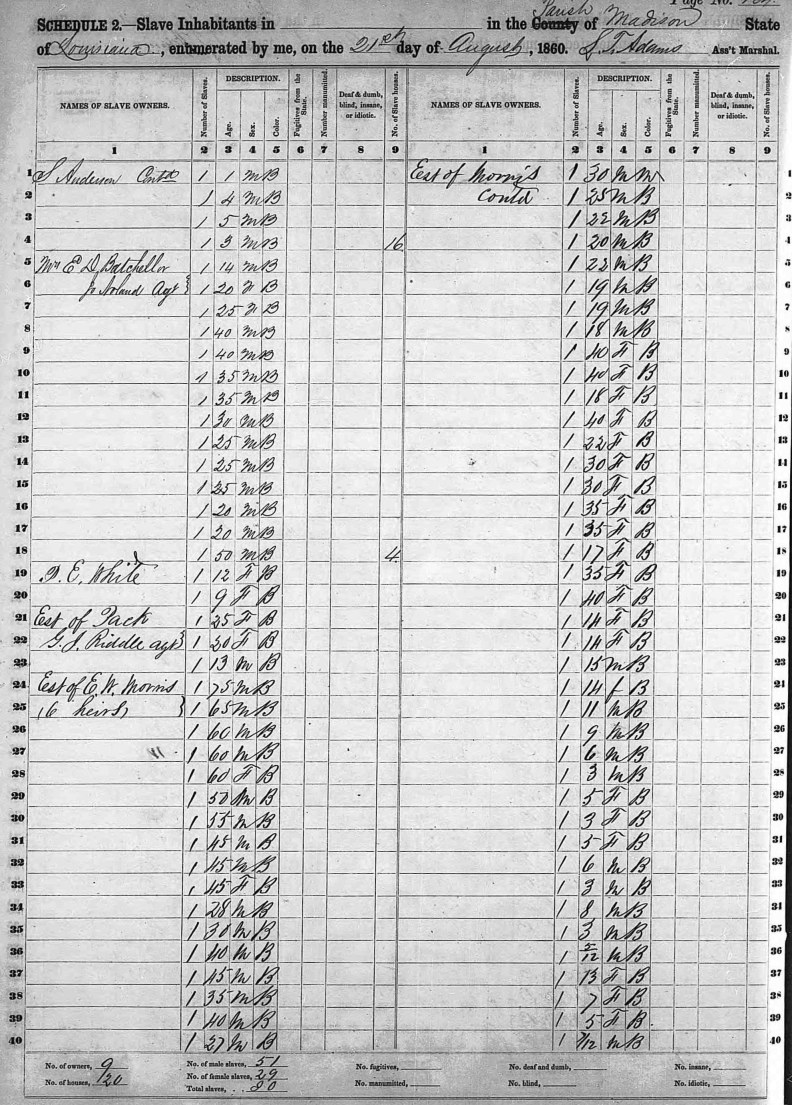 Page No.
SCHEDULE 2.—Slave Inhabitants in in the County Parish of Madison State
of Louisiana, enumerated by me, on the 21st day of August, 1860. S. T. Adams Ass't Marshal.
NAMES OF SLAVE OWNERS. Number of Slaves. DESCRIPTION. Age. Sex. Color. Fugitives from the State. Number manumitted. Deaf & dumb, blind, insane, or idiotic. No. of Slave houses. NAMES OF SLAVE OWNERS. Number of Slaves. DESCRIPTION. Age. Sex. Color. Fugitives from the State. Number manumitted. Deaf & dumb, blind, insane, or idiotic. No. of Slave houses.
1 2 3 4 5 6 7 8 9 1 2 3 4 5 6 7 8 9
1 S Anderson Contd 1 1 M B East of Morris 1 30 M M 1
2 1 4 M B Contd 1 25 M B 2
3 1 5 M B 1 22 M B 3
4 1 3 M B 16 1 20 M B 4
5 Mrs E D Batchellor 1 14 M B 1 22 M B 5
6 Jo Noland Agt 1 20 F B 1 19 M B 6
7 1 25 F B 1 19 M B 7
8 1 40 M B 1 18 M B 8
9 1 40 M B 1 40 F B 9
10 1 35 M B 1 40 F B 10
11 1 35 M B 1 18 F B 11
12 1 30 M B 1 40 F B 12
13 1 25 M B 1 22 F B 13
14 1 25 M B 1 30 F B 14
15 1 25 M B 1 30 F B 15
16 1 20 M B 1 35 F B 16
17 1 20 M B 1 35 F B 17
18 1 50 M B 4 1 17 F B 18
19 D. E. White 1 12 F B 1 35 F B 19
20 1 9 F B 1 40 F B 20
21 Est of Pack 1 25 F B 1 14 F B 21
22 G. S. Riddle agt 1 20 F B 1 14 F B 22
23 1 13 M B 1 15 M B 23
24 Est of E. W. Morris 1 75 M B 1 14 f B 24
25 (6 heirs) 1 65 M B 1 11 M B 25
26 1 60 M B 1 9 M B 26
27 1 60 M B 1 6 M B 27
28 1 60 F B 1 3 M B 28
29 1 50 M B 1 5 F B 29
30 1 55 M B 1 3 F B 30
31 1 45 M B 1 5 F B 31
32 1 45 M B 1 6 M B 32
33 1 45 F B 1 3 M B 33
34 1 28 M B 1 8 M B 34
35 1 30 M B 1 3 M B 35
36 1 40 M B 1 /12 M B 36
37 1 45 M B 1 13 F B 37
38 1 35 M B 1 7 F B 38
39 1 40 M B 1 5 F B 39
40 1 27 M B 1 7/12 M B 40
No. of owners, 9 No. of male slaves, 51 No. fugitives, No. deaf and dumb, No. insane,
No. of houses, 120 No. of female slaves, 29 No. manumitted, No. blind, No. idiotic,
Total slaves, 80